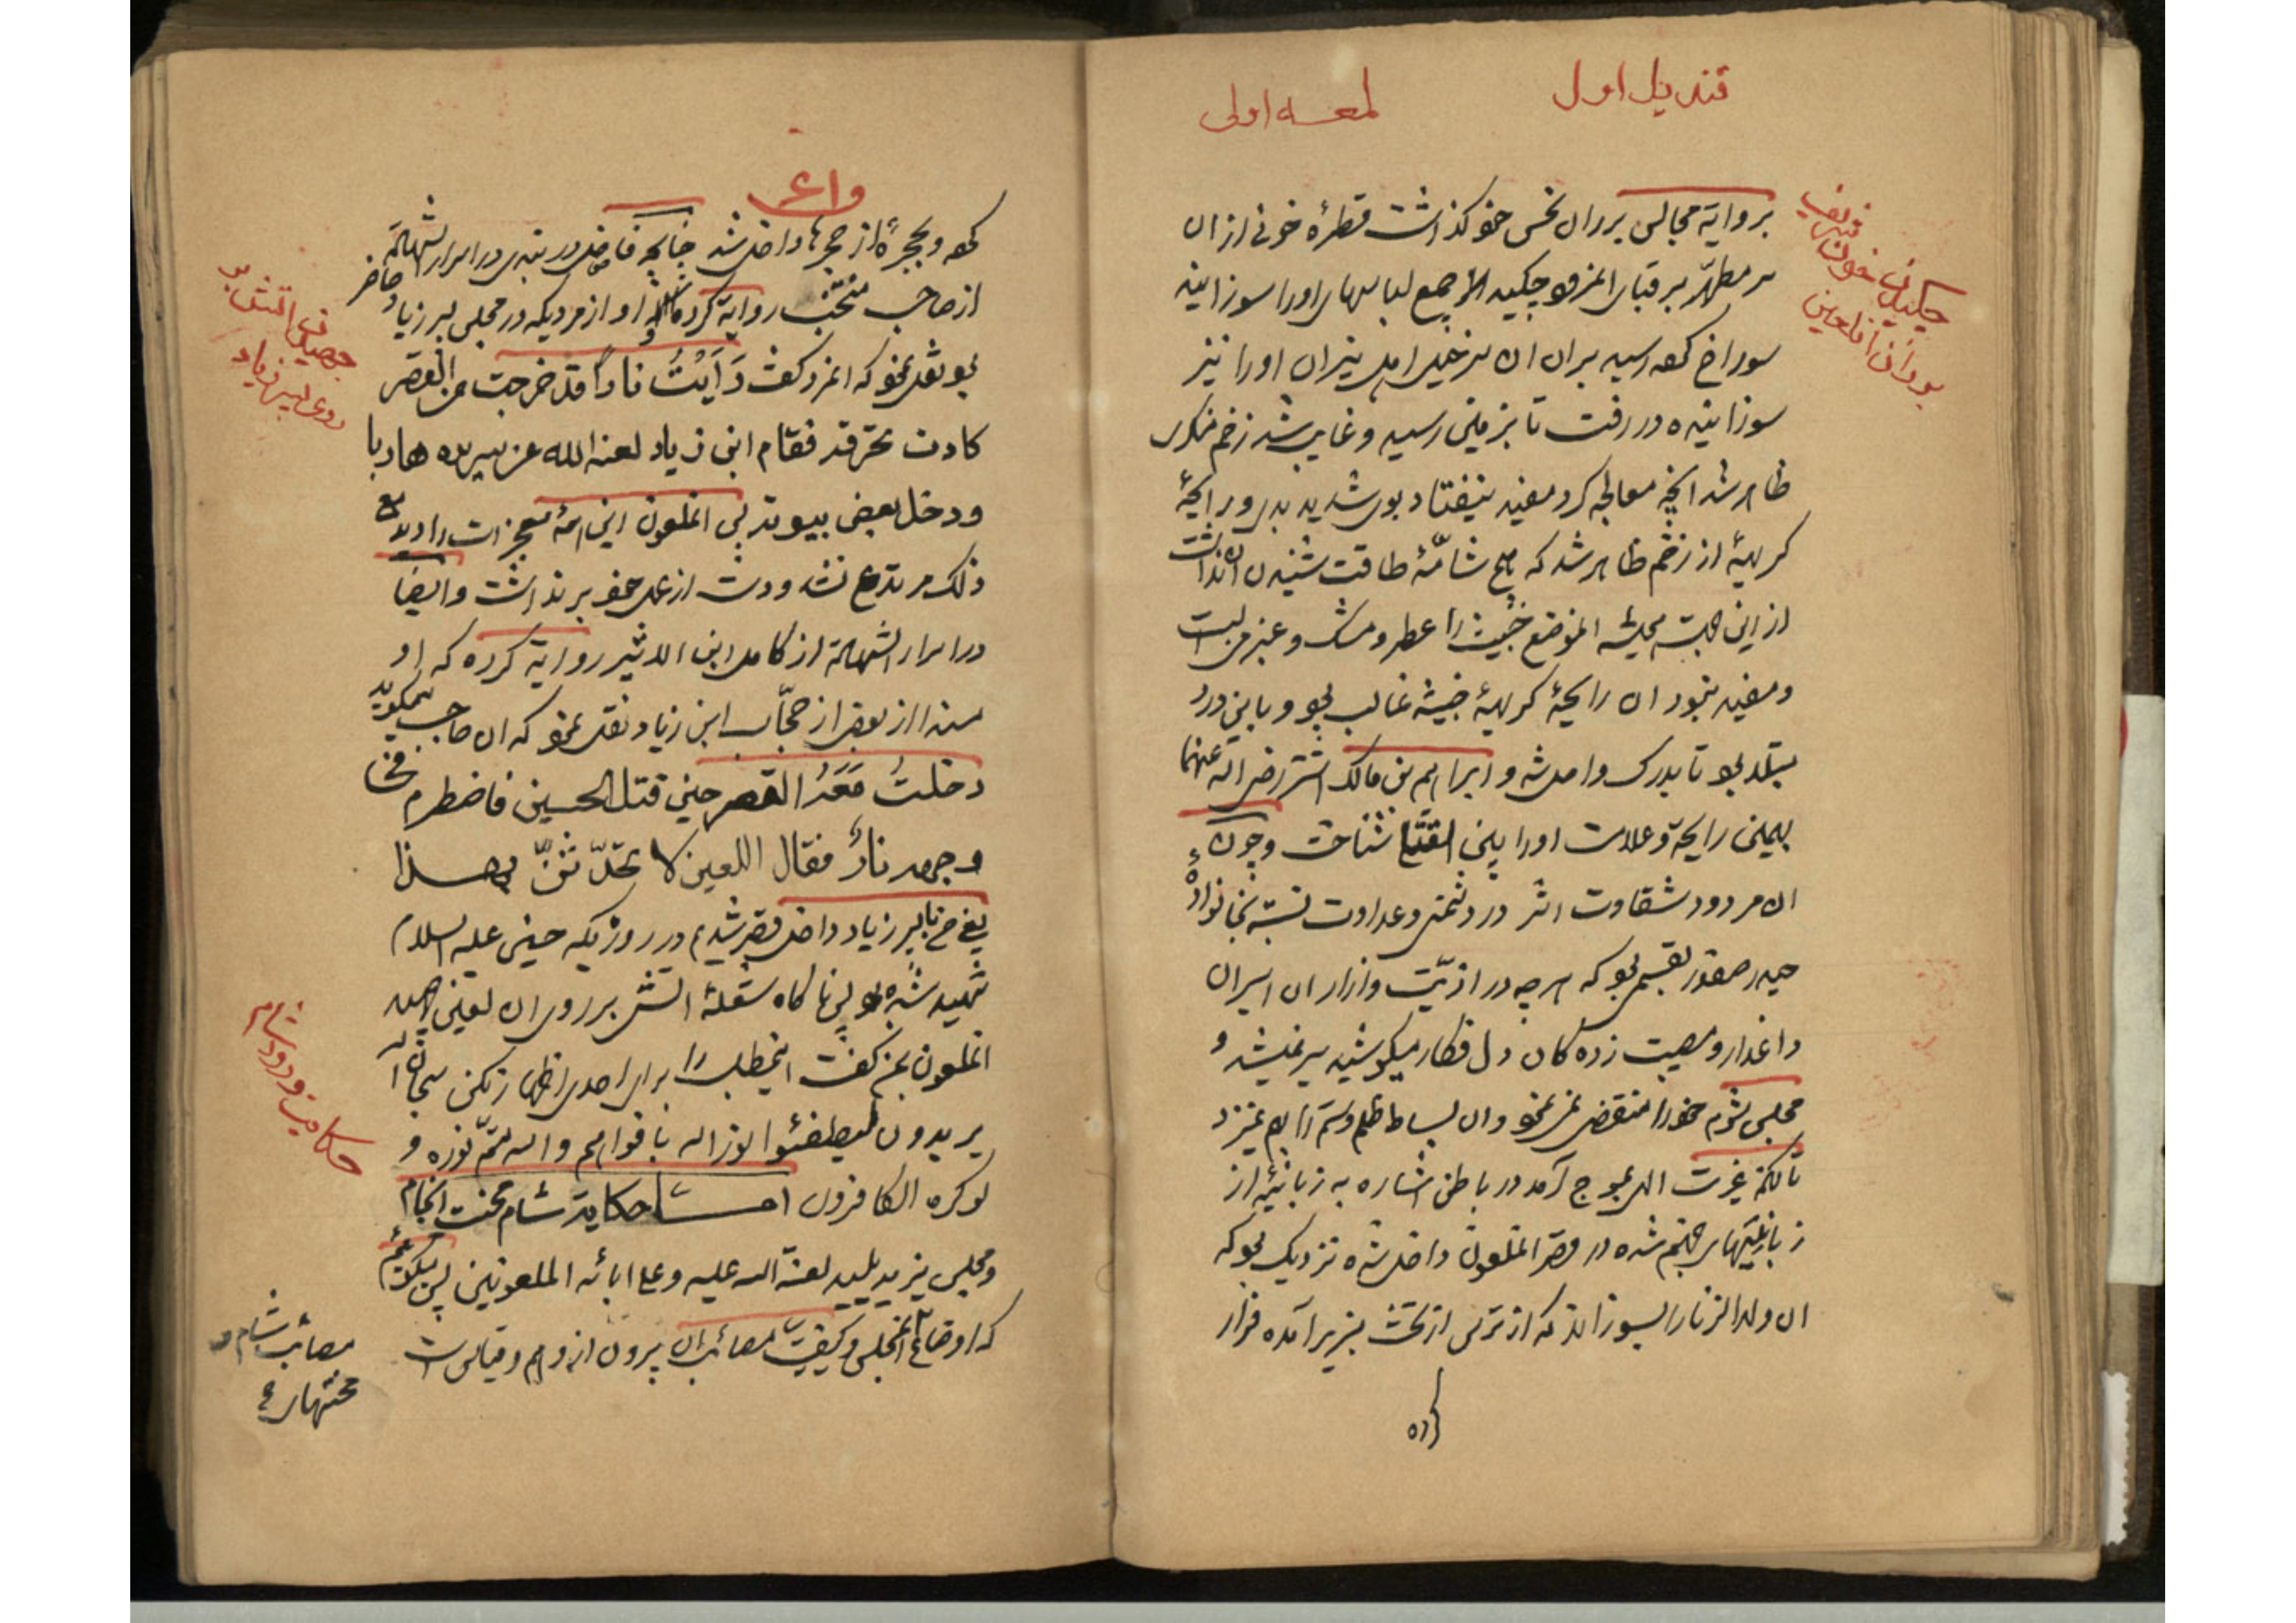 قندیل اول
لمعه اولی
بروایة مجالس بر ران نحس خود گذاشت قطرهٔ خونی از ان
سر مطهّر بر قبای چکید جمیع لباسهای اورا سوزانیده
سوراخ رسید بران ان اورا نیز
سوزانیده در رفت تا بزمین رسید و غایب شد زخم منکری
ظاهر شد انچه معالجه کرد مفید نیفتاد بوی شدید بدی و رایحهٔ
کریههٔ از زخم ظاهر شد که هیچ شامّهٔ طاقت شنیدن ان نداشت
از این جهت همیشه الموضع خبیث را عطر و مشک و عنبر می بست
و مفید نبود ان رایحهٔ کریههٔ خبیثه غالب بود و باین درد
مبتلا بود تا بدرک واصل شد و ابراهیم بن مالک اشتر رضی الله عنهما
بهمین رایحة و علامت اورا بین القتلا شناخت و چون
ان مردود شقاوت اثر در دشمنی و عداوت نسبة بخانوادهٔ
حیدر صفدر بقسمی بود که هر چه در اذیّت و ازار ان اسیران
داغدار و مصیبت زده کان دل فکار میکوشید سیر نمیشد و
مجلس شوم خود را منقضی نمی نمود و ان بساط ظلم و ستم را بهم نمیزد
تا انکه غیرت الهی بموج آمد در باطن اشاره به زبانیهٔ از
زبانیهای جهنم شده در قصر الملعون داخل شده نزدیک بود که
ان ولد الزنا را بسوزاند که از ترس از تخت بزیر آمده فرار
کرده
چکیدن خون
بر ران ان لعین
کرده و بحجرهٔ از حجرها داخل شد چنانچه فاضل دربندی در اسرار الشهادة
از صاحب منتخب روایة کرده و او از مردیکه در مجلس پسر زیاد حاضر
بود نقل نموده که انمرد گفت رَاَیْتُ ناراً قد خرجت من القصر
کادت تحرقه فقام ابن زیاد لعنه الله عن سریره هاربا
و دخل بعض بیوته پس الملعون این همه معجزات را دید مع
ذلک مرتدع نشد و دست از عمل خود بر نداشت و ایضا
در اسرار الشهادة از کامل ابن الاثیر روایة کرده که او
مسندا از بعض از حجّاب ابن زیاد نقل نموده که ان حاجب میگوید
دخلتُ مَعَهُ القصر حین قتل الحسین فاضطرم فی
وجهه نارٌ فقال اللعین لا تحدّثنّ بهذا
یعنی من با پسر زیاد داخل قصر شدیم در روزیکه حسین علیه السلام
شهید شده بود پس ناکاه شعلهٔ اتش بر روی ان لعین
الملعون بمن گفت اینمطلب را برای احدی اظهار نکن سبحان الله
یریدون لیطفئوا نور الله بافواههم و الله متمّ نوره و
لو کره الکافرون امّا حکایة شام محنت انجام
و مجلس یزید پلید لعنة الله علیه و علی ابائه الملعونین پس میگوئیم
که اوضاع المجلس و کیفیت مصائب ان بیرون از وهم و قیاس است
پسر زیاد
حکایت ورود شام
مصائب شام و
محنتهای